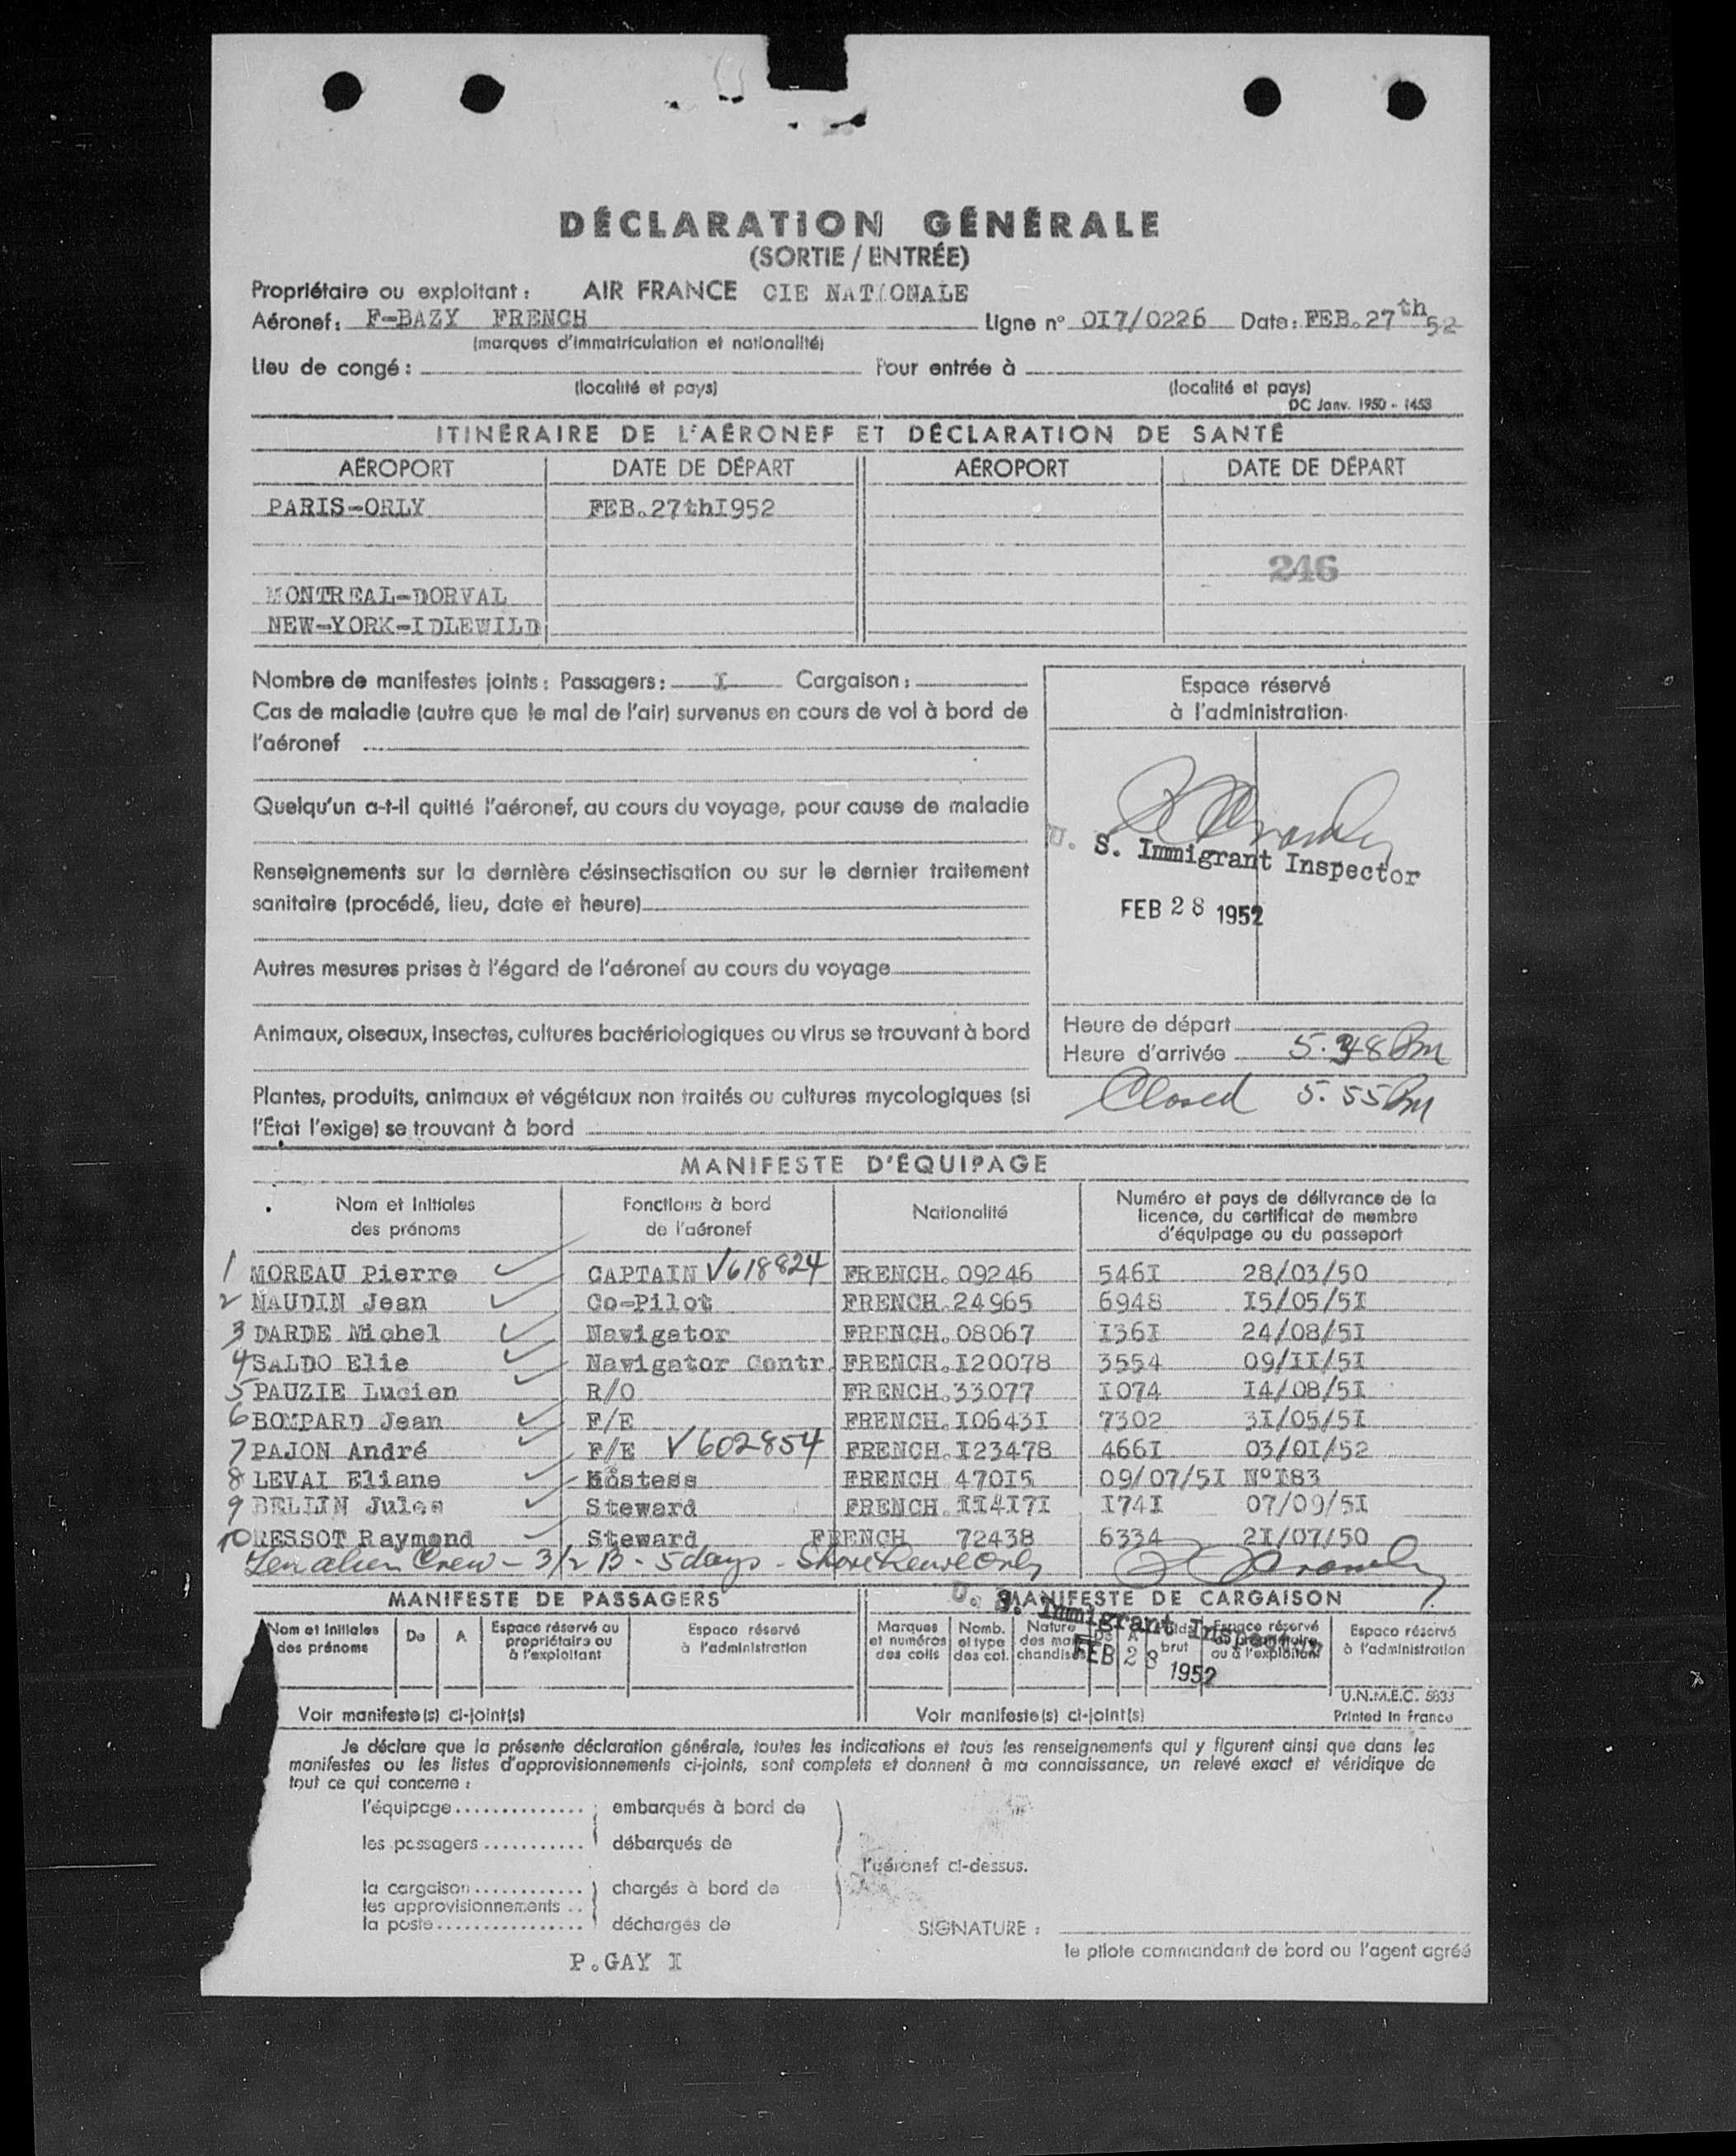 DÉCLARATION GÉNÉRALE
(SORTIE / ENTRÉE)
Propriétaire ou exploitant : AIR FRANCE CIE NATIONALE
Aéronef : F-BAZY FRENCH Ligne n° OI7/0226 Date : FEB.27th 52
(marques d'immatriculation et nationalité)
Lieu de congé : Pour entrée à
(localité et pays) (localité et pays)
DC Janv. 1950 - 1453
ITINÉRAIRE DE L'AÉRONEF ET DÉCLARATION DE SANTÉ
AÉROPORT DATE DE DÉPART AÉROPORT DATE DE DÉPART
PARIS-ORLY FEB.27thI952
246
MONTREAL-DORVAL
NEW-YORK-IDLEWILD
Nombre de manifestes joints : Passagers : I Cargaison :
Cas de maladie (autre que le mal de l'air) survenus en cours de vol à bord de
l'aéronef
Quelqu'un a-t-il quitté l'aéronef, au cours du voyage, pour cause de maladie
Renseignements sur la dernière désinsectisation ou sur le dernier traitement
sanitaire (procédé, lieu, date et heure)
Autres mesures prises à l'égard de l'aéronef au cours du voyage
Animaux, oiseaux, insectes, cultures bactériologiques ou virus se trouvant à bord
Plantes, produits, animaux et végétaux non traités ou cultures mycologiques (si
l'État l'exige) se trouvant à bord
Espace réservé
à l'administration
U. S. Immigrant Inspector
FEB 28 1952
Heure de départ
Heure d'arrivée 5.48 Pm
Closed 5.55 Pm
MANIFESTE D'ÉQUIPAGE
Nom et Initiales des prénoms Fonctions à bord de l'aéronef Nationalité Numéro et pays de délivrance de la licence, du certificat de membre d'équipage ou du passeport
1 MOREAU Pierre CAPTAIN V618824 FRENCH.09246 546I 28/03/50
2 NAUDIN Jean Co-Pilot FRENCH.24965 6948 I5/05/5I
3 DARDE Michel Navigator FRENCH.08067 I36I 24/08/5I
4 SALDO Elie Navigator Contr. FRENCH.I20078 3554 09/II/5I
5 PAUZIE Lucien R/O FRENCH.33077 I074 I4/08/5I
6 BOMPARD Jean F/E FRENCH.I0643I 7302 3I/05/5I
7 PAJON André F/E V602854 FRENCH.I23478 466I 03/0I/52
8 LEVAI Eliane Hostess FRENCH 470I5 09/07/5I N°I83
9 BELLIN Jules Steward FRENCH.II4I7I I74I 07/09/5I
10 RESSOT Raymond Steward FRENCH 72438 6334 2I/07/50
Ten alien Crew - 3/2 B - 5 days - Shore Leave Only
MANIFESTE DE PASSAGERS MANIFESTE DE CARGAISON
U. S. Immigrant Inspector
FEB 28 1952
Nom et Initiales des prénoms De A Espace réservé au propriétaire ou à l'exploitant Espace réservé à l'administration Marques et numéros des colis Nomb. et type des col. Nature des marchandises De A Poids brut Espace réservé au propriétaire ou à l'exploitant Espace réservé à l'administration
U.N.M.E.C. 5633
Voir manifeste(s) ci-joint(s) Voir manifeste(s) ci-joint(s) Printed in France
Je déclare que la présente déclaration générale, toutes les indications et tous les renseignements qui y figurent ainsi que dans les
manifestes ou les listes d'approvisionnements ci-joints, sont complets et donnent à ma connaissance, un relevé exact et véridique de
tout ce qui concerne :
l'équipage............... embarqués à bord de
les passagers........... débarqués de
l'aéronef ci-dessus.
la cargaison............ chargés à bord de
les approvisionnements ..
la poste................ déchargés de
SIGNATURE :
le pilote commandant de bord ou l'agent agréé
P.GAY I